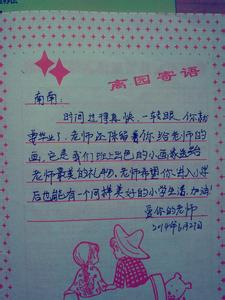 离园寄语
南南：
时间过得真快，一转眼你就
要毕业了，老师还保留着你给老师的
画，它是我们班上出色的小画家送给
老师最美的礼物，老师希望你进入小学
后也能有一个同样美好的小学生活，加油！
爱你的老师
2014年6月27日